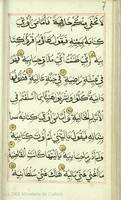 لا تخفى منكم خافية فأما من أوتي
كتابه بيمينه فيقول هاؤم اقرؤا كتا
بيه إني ظننت أني ملاق حسابيه فهو
في عيشة راضية في جنة عالية قطوفها
دانية كلوا واشربوا هنيئا بما أسلفتم
في الأيام الخالية وأما من أوتي كتابه
بشماله فيقول يا ليتني لم أوت كتابيه
ولم أدر ما حسابيه يا ليتها كانت القاضية
ما أغنى عني ماليه هلك عني سلطانيه